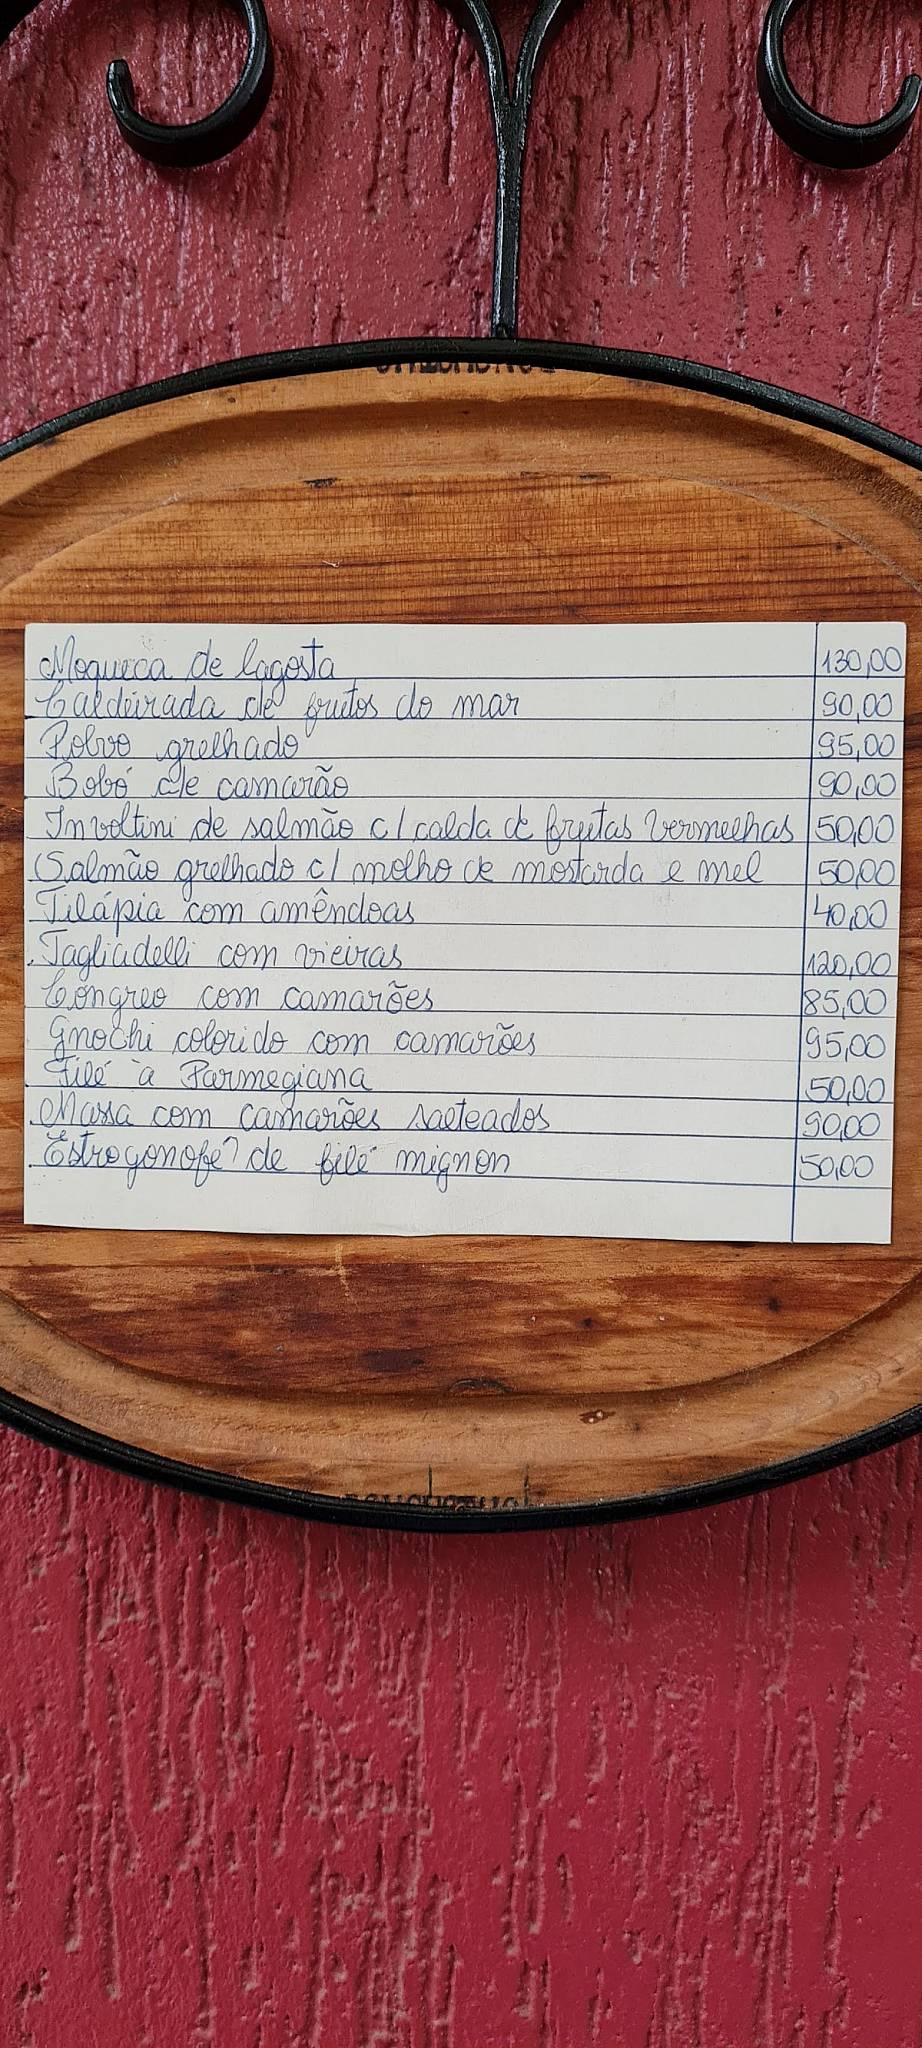 Moqueca de lagosta 130,00
Caldeirada de frutos do mar 90,00
Polvo grelhado 95,00
Bobó de camarão 90,00
Involtini de salmão c/ calda de frutas vermelhas 50,00
Salmão grelhado c/ molho de mostarda e mel 50,00
Tilápia com amêndoas 40,00
Tagliadelli com vieiras 120,00
Côngreo com camarões 85,00
Gnochi colorido com camarões 95,00
Filé à Parmegiana 50,00
Massa com camarões salteados 90,00
Estrogonofe de filé mignon 50,00